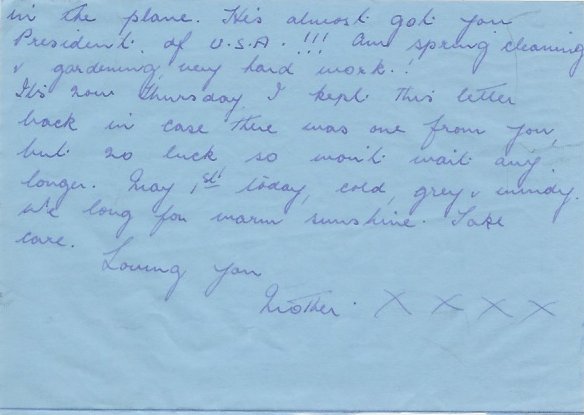 in the plane. He's almost got you
President of U.S.A. !!! Am spring cleaning
& gardening, very hard work.!
It's now Thursday, I kept this letter
back in case there was one from you,
but no luck so won't wait any
longer. May 1st today, cold, grey & windy.
We long for warm sunshine. Take
care.
Loving you
Mother. X X X X